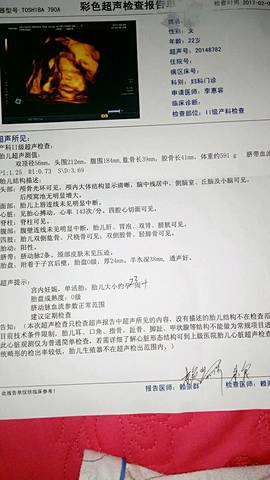 彩色超声检查报告单
器型号:TOSHIBA 790A
检查时间:2017-02-0
性别:女
年龄:22岁
超声号:20148782
病区床号:
科别:妇科门诊
申请医师:李惠容
临床诊断:
检查部位:II级产科检查
超声所见:
产科II级超声检查:
胎儿超声测值:
双顶径56mm,头围212mm,腹围184mm,肱骨长39mm,股骨长41mm,体重约591 g
PI:1.25 RI:0.73 S\D:3.69
脐带血流
胎儿结构描述:
头部:颅骨光环可见。颅内大体结构显示清晰,脑中线居中,侧脑室、丘脑及小脑可见。
后颅窝池无明显增大。
面部:胎儿上唇连续未见明显中断。
心脏:见胎心搏动,心率 143次/分,四腔心切面可见。
脊柱:脊柱可见。
腹部:腹壁连续未见明显中断,胎儿肝、胃泡、双肾、膀胱可见。
四肢:胎儿双侧肱骨、尺桡骨可见;双侧股骨、胫腓骨可见。
胎动:阳性。
脐带:脐动脉2条,颈部皮肤未见压迹。
胎盘:附着于子宫后壁,胎盘0级,厚24mm,羊水深38mm,透声好。
超声提示:
宫内妊娠,单活胎,胎儿大小约23周+
胎盘成熟度:0级
脐动脉血流参数正常范围
建议定期检查
告知:(本次超声检查只检查超声报告中超声所见的内容,没有描述的胎儿结构不在检查范
目前技术条件限制,胎儿耳、口角、指骨、趾骨、脚趾、甲状腺等结构不能做为常规项目进
此心脏观测仅为普通简单检查,若需详细了解心脏形态结构可到上级医院胎儿心脏超声检查
统畸形的检出率较低,胎儿生殖器不在超声检出范围内。)
报告医师:赖崇群
检查医师:赖
此报告单仅供临床参考!